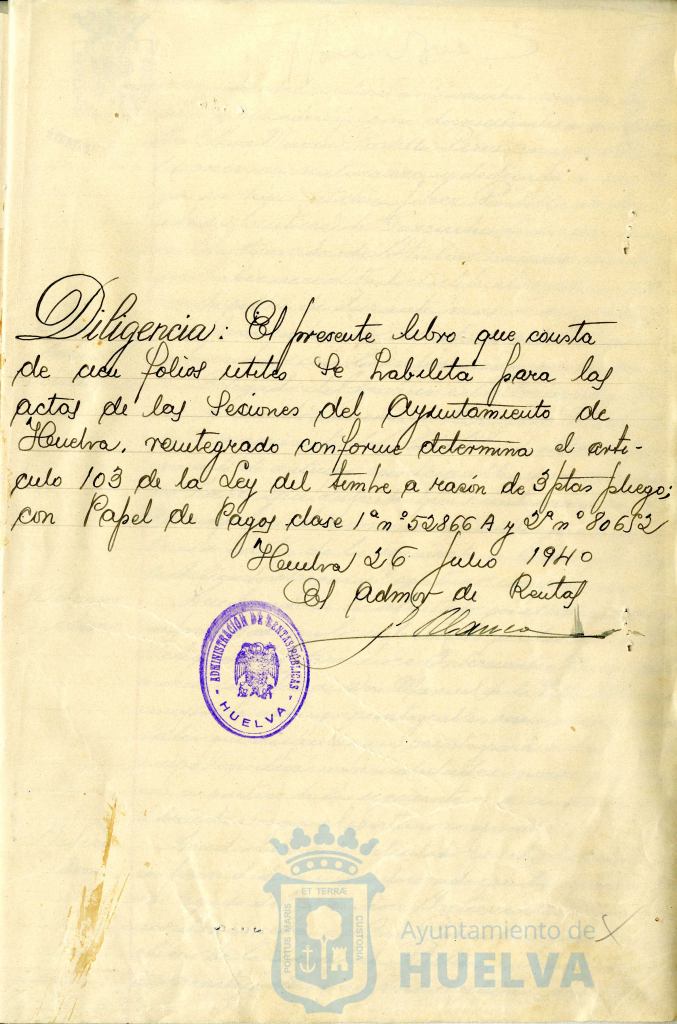 Diligencia: El presente libro que consta
de cien folios utiles se habilita para las
actas de las Sesiones del Ayuntamiento de
Huelva, reintegrado conforme determina el arti-
culo 103 de la Ley del timbre a razón de 3 ptas pliego;
con Papel de Pagos clase 1ª nº 52866 A y 2ª nº 80652
Huelva 26 Julio 1940
El Admor de Rentas
Blanco
ADMINISTRACIÓN DE RENTAS PÚBLICAS
HUELVA
PORTUS MARIS
ET TERRÆ
CUSTODIA
Ayuntamiento de
HUELVA